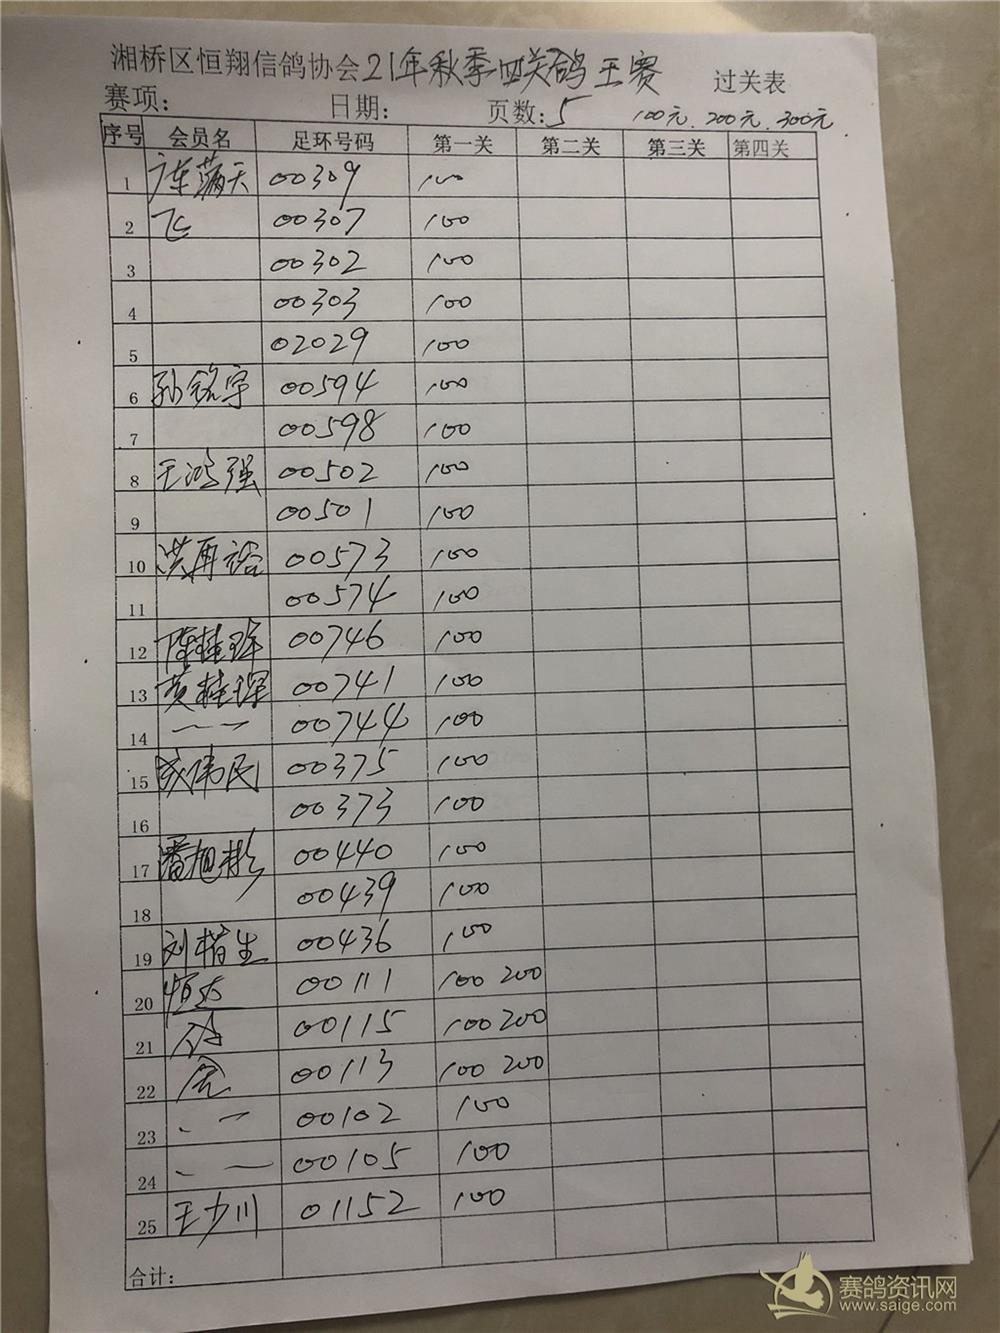 湘桥区恒翔信鸽协会21年秋季四关鸽王赛 过关表
赛项: 日期: 页数:5 100元.200元.300元
序号 会员名 足环号码 第一关 第二关 第三关 第四关
1 满天 00309 100
2 飞 00307 100
3 00302 100
4 00303 100
5 02029 100
6 孙铭宇 00594 100
7 00598 100
8 王鸿强 00502 100
9 00501 100
10 洪再裕 00573 100
11 00574 100
12 陈桂 00746 100
13 黄桂深 00741 100
14 00744 100
15 伟民 00375 100
16 00373 100
17 潘旭彬 00440 100
18 00439 100
19 刘楷生 00436 100
20 恒达 00111 100 200
21 00115 100 200
22 00113 100 200
23 00102 100
24 00105 100
25 王少川 01152 100
合计:
赛鸽资讯网
www.saige.com